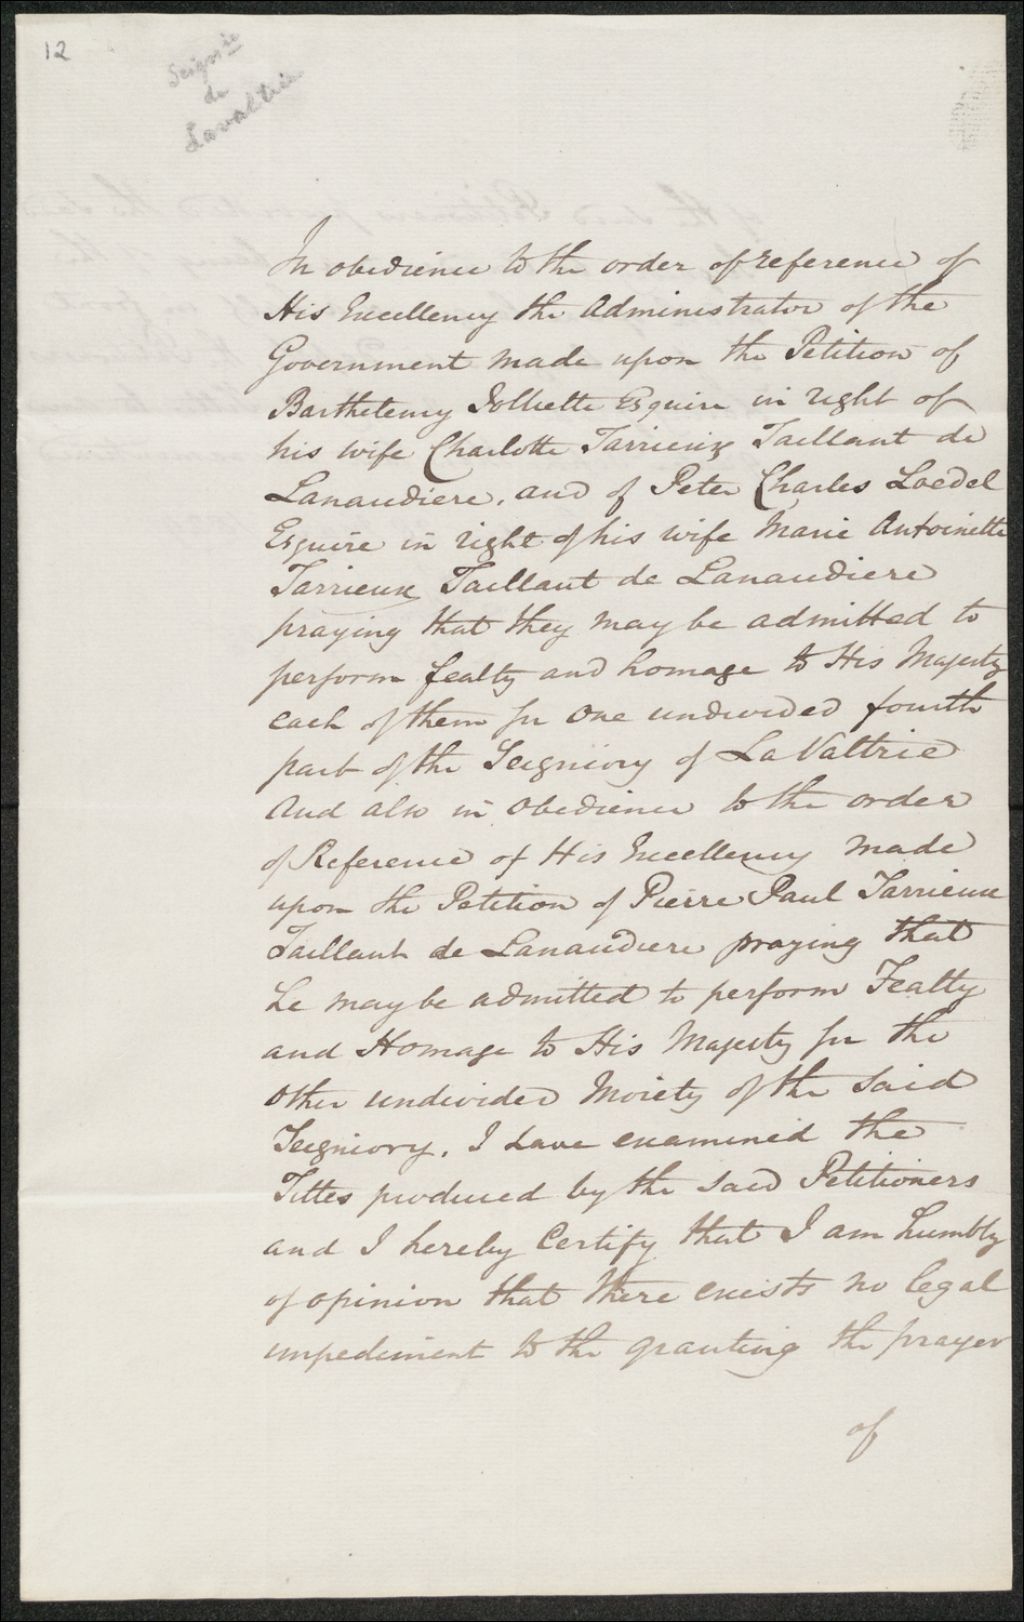 12
Seigrie
de
Lavaltrie
In obedience to the order of reference of
His Excellency the Administrator of the
Government made upon the Petition of
Barthelemy Jolliette Esquire in right of
his wife Charlotte Tarrieux Taillant de
Lanaudiere, and of Peter Charles Loedel
Esquire in right of his wife Marie Antoinette
Tarrieux Taillant de Lanaudiere
praying that they may be admitted to
perform fealty and homage to His Majesty
each of them for one undivided fourth
part of the Seigniory of La Valtrie
And also in obedience to the order
of Reference of His Excellency made
upon the Petition of Pierre Paul Tarrieux
Taillant de Lanaudiere praying that
he may be admitted to perform Fealty
and Homage to His Majesty for the
other undivided Moiety of the said
Seigniory. I have examined the
Titles produced by the said Petitioners
and I hereby Certify that I am humbly
of opinion that there exists no legal
impediment to the granting the prayer
of